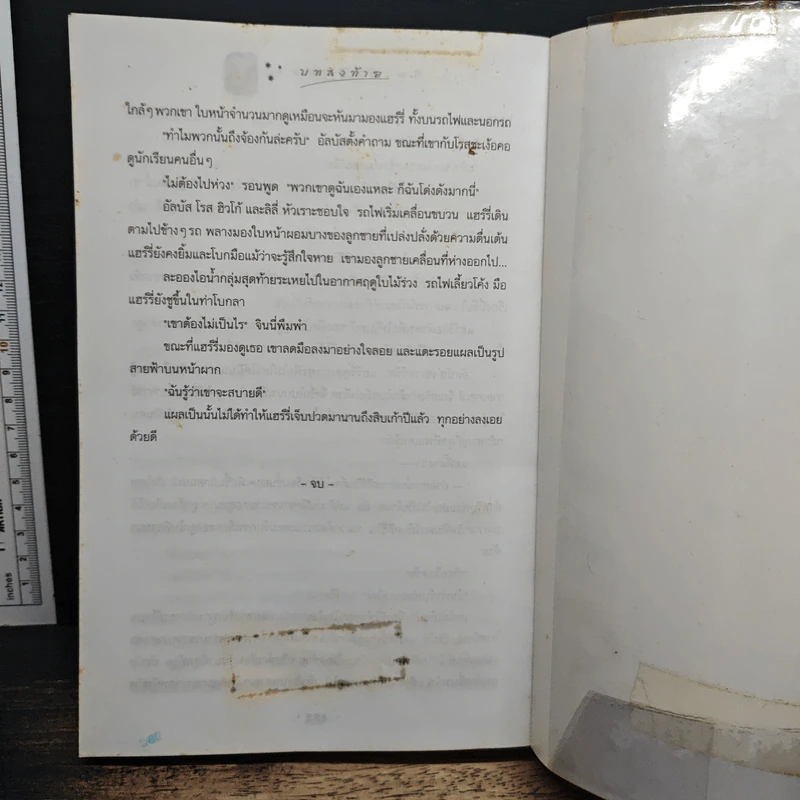 บทส่งท้าย
ใกล้ๆ พวกเขา ใบหน้าจำนวนมากดูเหมือนจะหันมามองแฮร์รี่ ทั้งบนรถไฟและนอกรถ
"ทำไมพวกนั้นถึงจ้องกันล่ะครับ" อัลบัสตั้งคำถาม ขณะที่เขากับโรสชะเง้อคอ
ดูนักเรียนคนอื่นๆ
"ไม่ต้องไปห่วง" รอนพูด "พวกเขาดูฉันเองแหละ ก็ฉันโด่งดังมากนี่"
อัลบัส โรส ฮิวโก้ และลิลี่ หัวเราะชอบใจ รถไฟเริ่มเคลื่อนขบวน แฮร์รี่เดิน
ตามไปข้างๆ รถ พลางมองใบหน้าผอมบางของลูกชายที่เปล่งปลั่งด้วยความตื่นเต้น
แฮร์รี่ยังคงยิ้มและโบกมือแม้ว่าจะรู้สึกใจหาย เขามองลูกชายเคลื่อนที่ห่างออกไป...
ละอองไอน้ำกลุ่มสุดท้ายระเหยไปในอากาศฤดูใบไม้ร่วง รถไฟเลี้ยวโค้ง มือ
แฮร์รี่ยังชูขึ้นในท่าโบกลา
"เขาต้องไม่เป็นไร" จินนี่พึมพำ
ขณะที่แฮร์รี่มองดูเธอ เขาลดมือลงมาอย่างใจลอย และแตะรอยแผลเป็นรูป
สายฟ้าบนหน้าผาก
"ฉันรู้ว่าเขาจะสบายดี"
แผลเป็นนั้นไม่ได้ทำให้แฮร์รี่เจ็บปวดมานานถึงสิบเก้าปีแล้ว ทุกอย่างลงเอย
ด้วยดี
- จบ -
inches
1
2
3
4
5
10
11
12